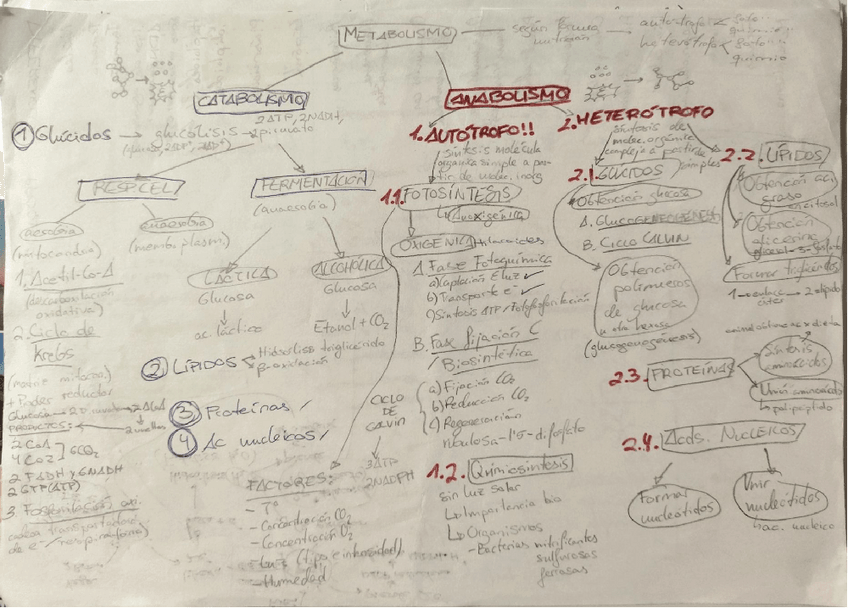 METABOLISMO
según forma
nutrición
autótrofo
heterótrofo
foto..
quimio..
foto...
quimio
CATABOLISMO
2ATP, 2NADH,
① Glúcidos → glucólisis → 2 piruvato
RESP CEL
FERMENTACIÓN
(anaerobia)
aerobia
(mitocondria)
anaerobia
(membr. plasm.)
1. Acetil-Co-A
(descarboxilación
oxidativa)
2. Ciclo de
Krebs
(matriz mitoc.)
+ Poder reductor
PRODUCTOS:
2 vueltas
6CO2
2 FADH y 6NADH
2 GTP (ATP)
3. Fosforilación oxi.
cadena transportadora
de e-
LÁCTICA
Glucosa
ac. láctico
ALCOHÓLICA
Glucosa
Etanol + CO2
② LÍPIDOS
Hidrólisis triglicérido
β-oxidación
③ Proteínas
④ Ac nucleicos
FACTORES:
- Tª
- Concentración CO2
- Concentración O2
- Luz (tipo e intensidad)
- Humedad
ANABOLISMO
1. AUTÓTROFO!!
síntesis molécula
orgánica simple a par-
tir de molec. inorg
1.1. FOTOSÍNTESIS
Anoxigénica
OXIGÉNICA
A. Fase Fotoquímica
a) Captación E luz ✓
b) Transporte e- ✓
c) Síntesis ATP / Fotofosforilación
B. Fase fijación C
/ Biosintética
CICLO
DE
CALVIN
a) Fijación CO2
b) Reducción CO2
c) Regeneración
ribulosa-1'5-difosfato
3ATP
2NADPH
1.2. Quimiosíntesis
sin luz solar
↳ Importancia bio
↳ Organismos
- Bacterias nitrificantes
sulfurosas
ferrosas
2. HETERÓTROFO
síntesis de
molec. orgánica
compleja a partir de
simples
2.1. GLÚCIDOS
Obtención glucosa
A. GLUCONEOGÉNESIS
B. CICLO CALVIN
Obtención
polímeros
de glucosa
(glucogenogénesis)
2.2. LÍPIDOS
Obtención áci
graso
Obtención
glicerina
glicerol-3-fosfato
Formar triglicéridos
2.3. PROTEÍNAS
Síntesis
aminoácidos
Unir aminoácidos
↳ polipéptido
2.4. Acds. NUCLEICOS
Formar
nucleótidos
Unir
nucleótidos
↳ ac. nucleico